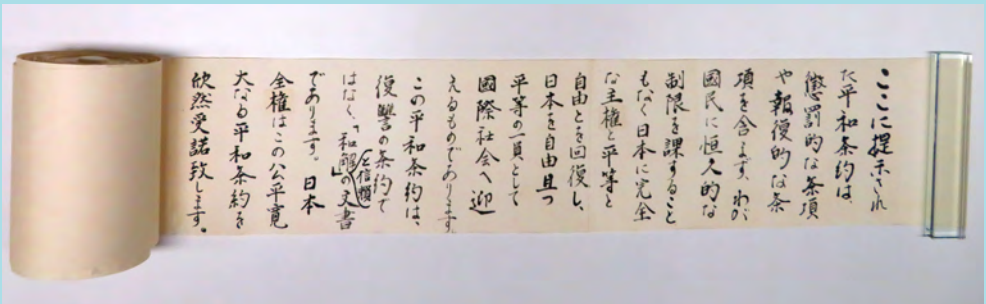 ここに提示され
た平和条約は、
懲罰的な条項
や報復的な条
項を含まず、わが
國民に恒久的な
制限を課すること
もなく日本に完全
な主権と平等と
自由とを回復し、
日本を自由且つ
平等の一員として
國際社会へ迎
えるものであります。
この平和条約は、
復讐の条約で
はなく、「和解と信頼」の文書
であります。日本
全権はこの公平寛
大なる平和条約を
欣然受諾致します。